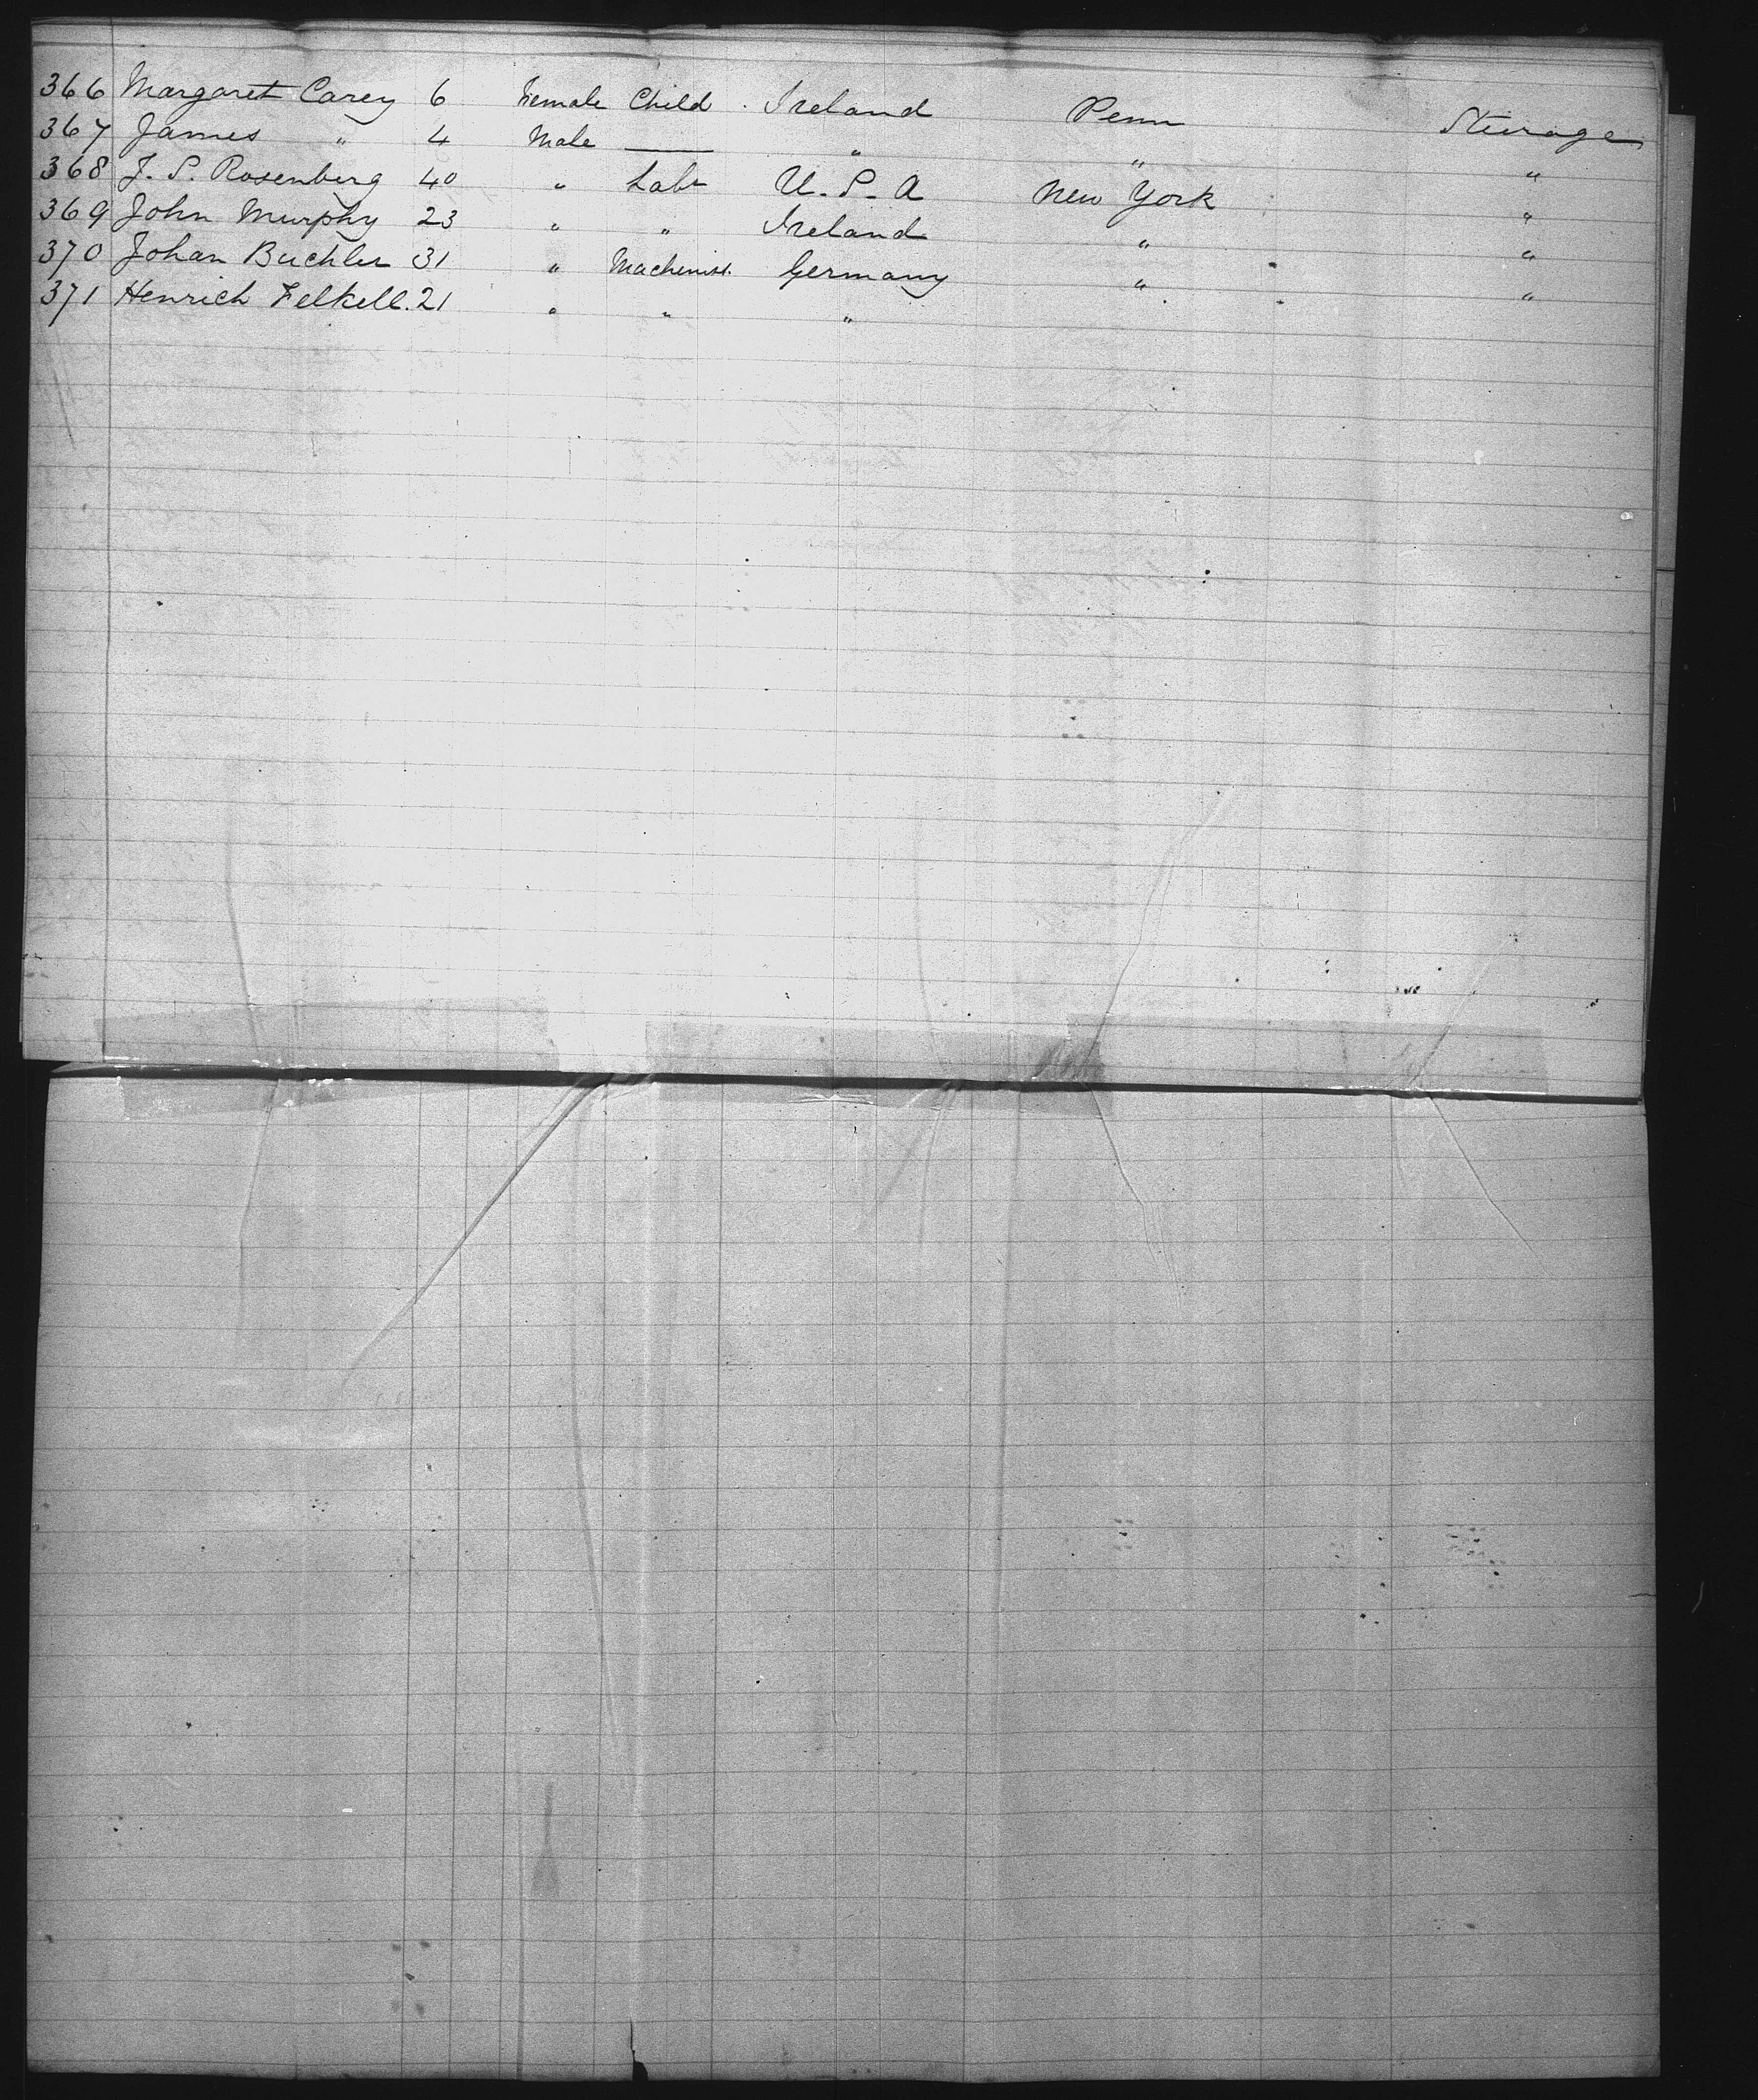 366 Margaret Carey 6 Female Child Ireland Penn Steerage
367 James " 4 Male — " " "
368 J. S. Rosenberg 40 " Labr U. S. A New York "
369 John Murphy 23 " " Ireland " "
370 Johan Buchler 31 " Machinist. Germany " "
371 Henrich Felkell. 21 " " "